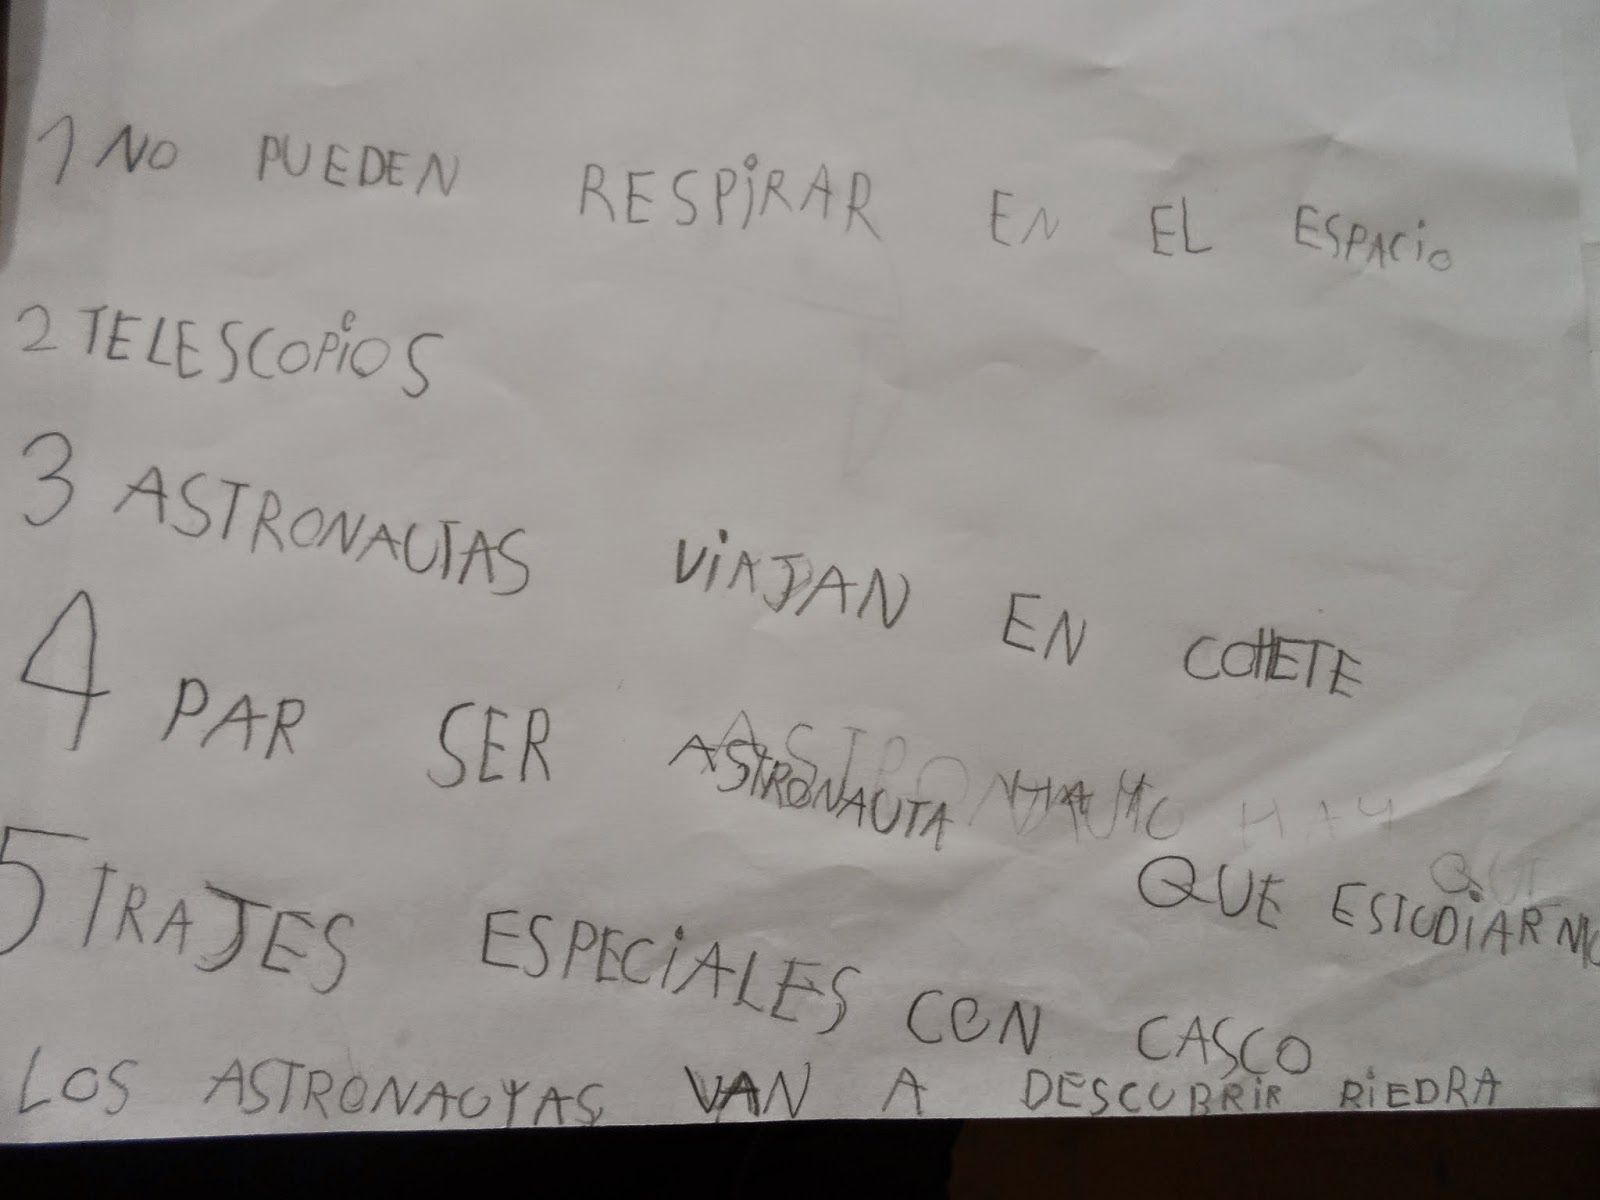 1 NO PUEDEN RESPiRAR EN EL ESPACiO
2 TELESCOPiOS
3 ASTRONAUTAS ViAJAN EN COHETE
4 PAR SER ASTRONAUTA HAY
QUE ESTUDiAR
5 TRAJES ESPECiALES CON CASCO
LOS ASTRONAUTAS VAN A DESCUBRiR PiEDRA